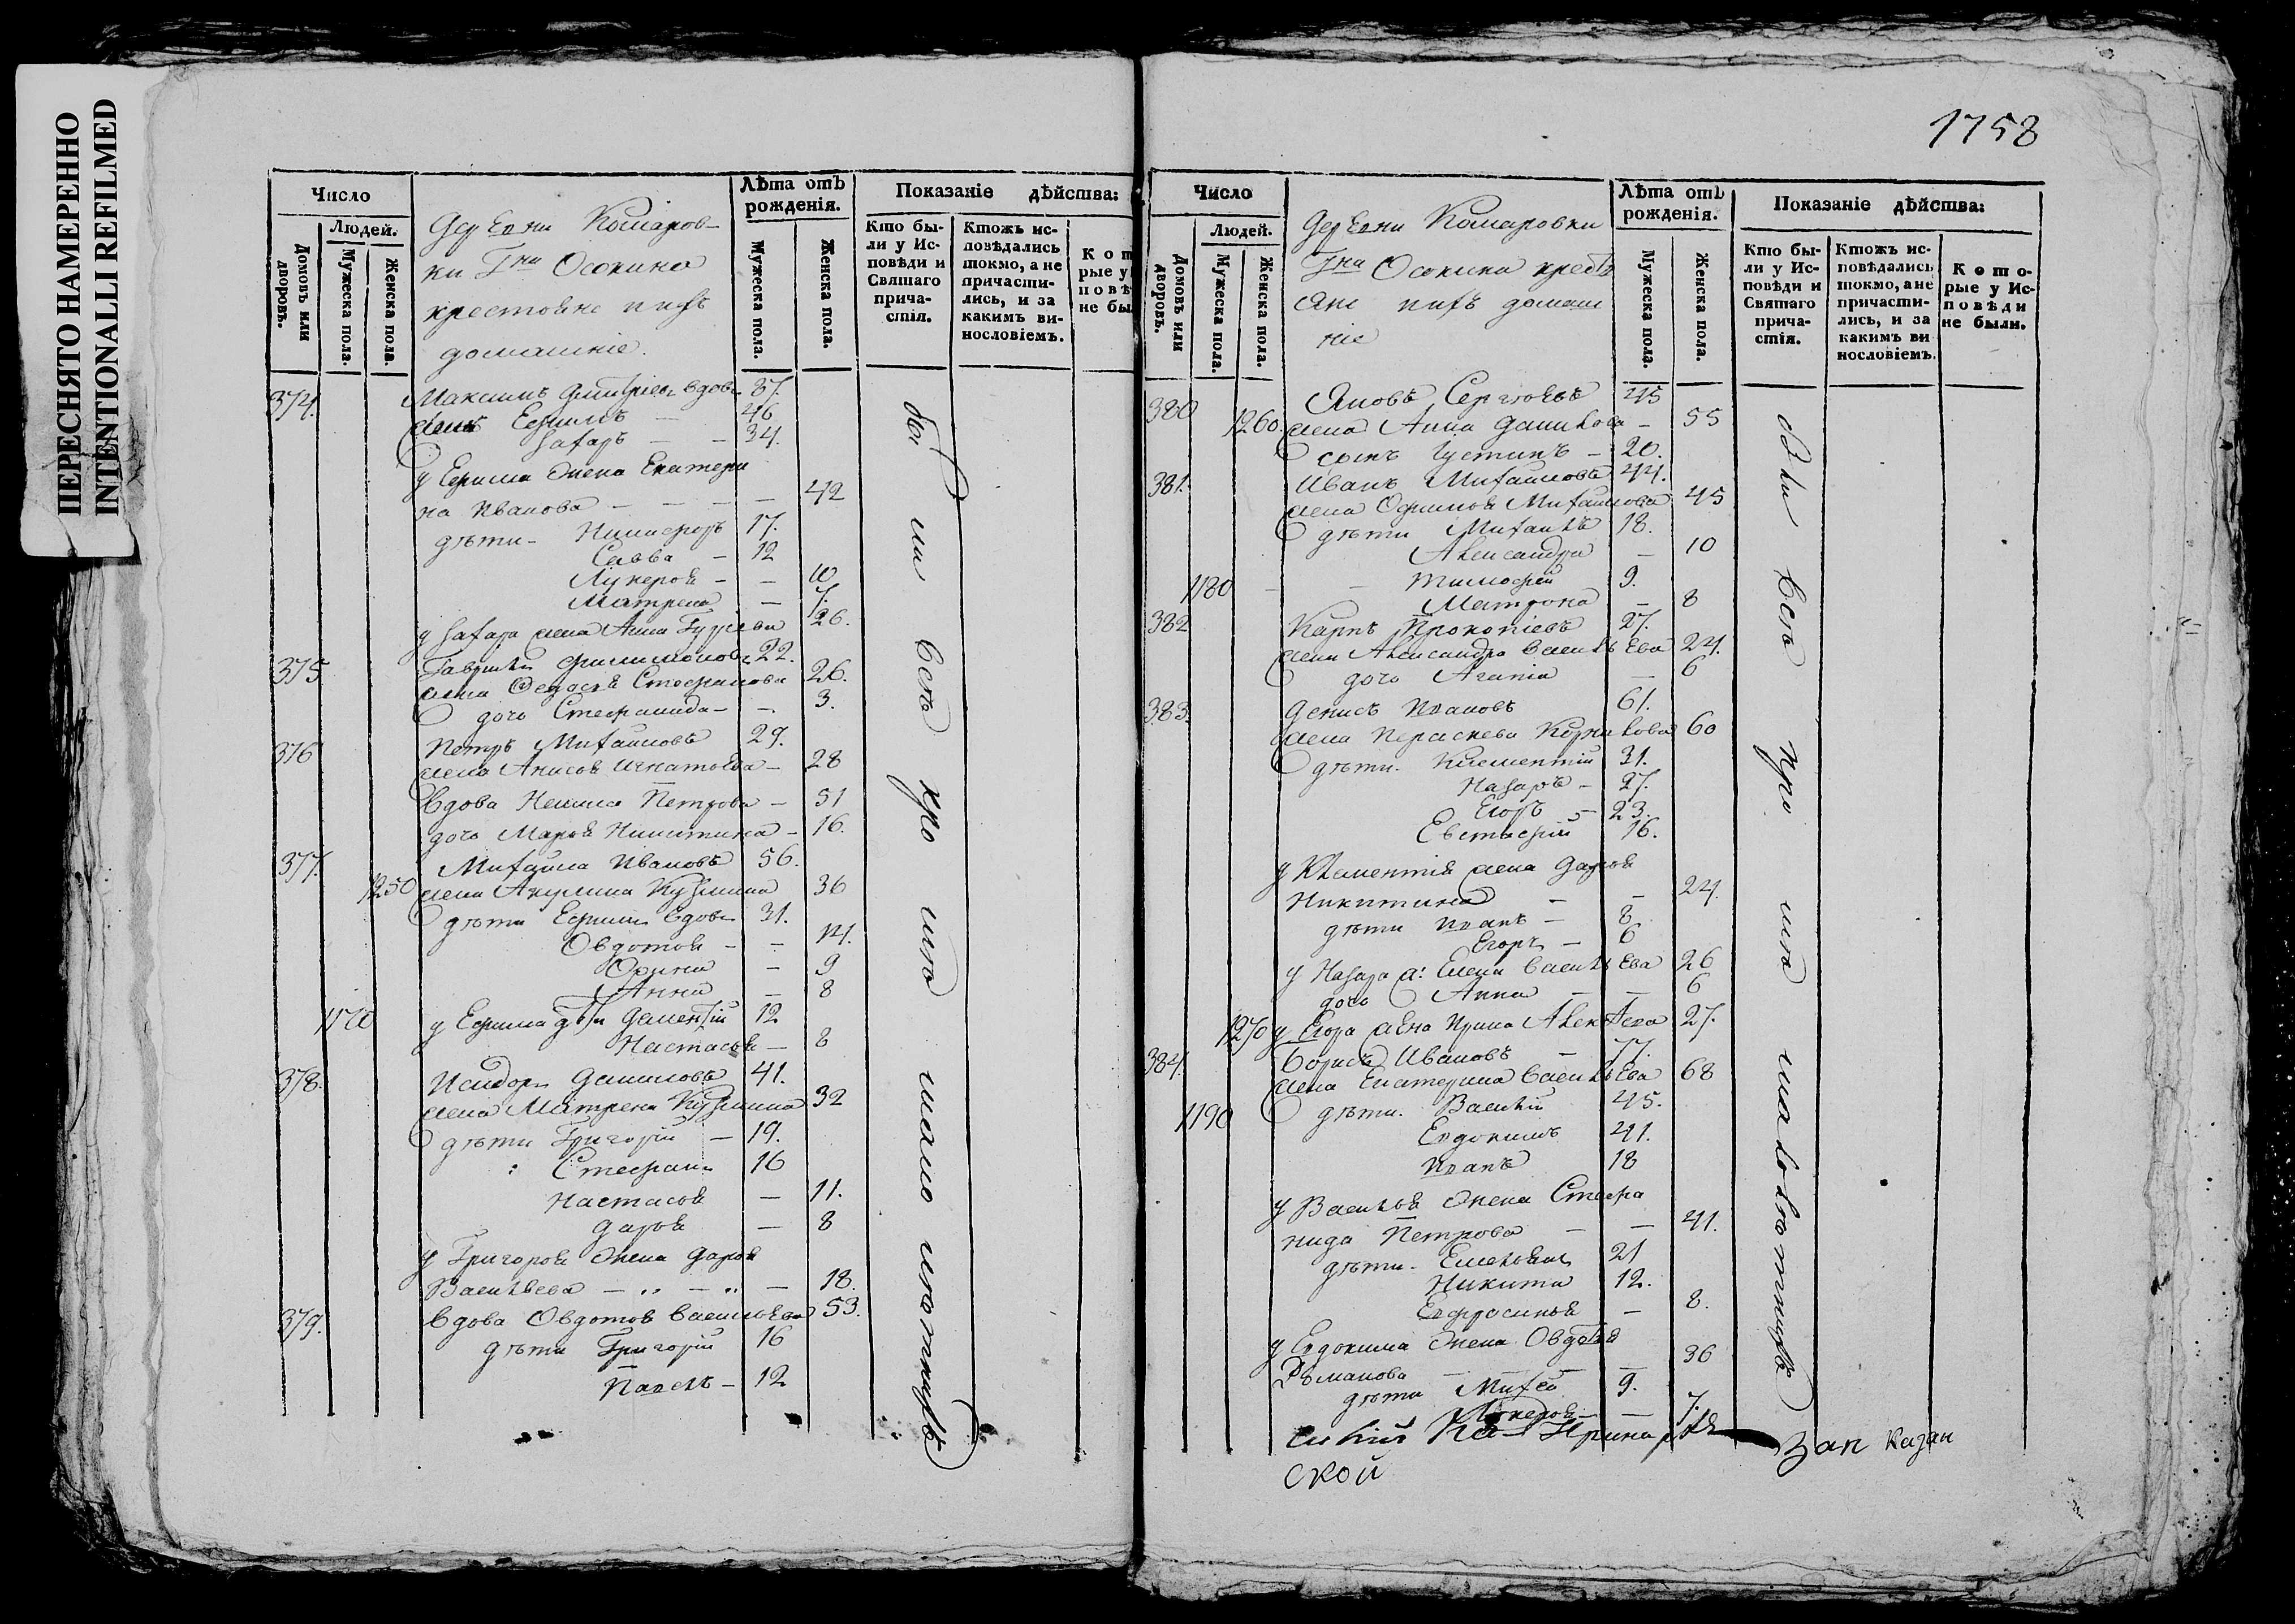 ПЕРЕСНЯТО НАМЕРЕННО
INTENTIONALLI REFILMED
Число
Людей.
Домовъ или дворовъ.
Мужеска пола.
Женска пола.
Деревни Комаров-
ки Гна Осокина
крестьяне и ихъ
домашніе.
Лѣта отъ рожденія.
Мужеска пола.
Женска пола.
Показаніе дѣйства:
Кто бы-
ли у Ис-
повѣди и
Святаго
прича-
стія.
Ктожъ ис-
повѣдались
токмо, а не
причасти-
лись, и за
какимъ ви-
нословіемъ.
Кот
рые у
повѣ
не бы
374. Максимъ Дмитріевъ вдовъ 87.
Ефимъ — 46
Захаръ — — 34.
у Ефима жена Екатери
на Иванова — — — — 42
дѣти - Никифоръ 17.
Савва — 12
Лукерья — — 10
Матрена — 7.
у Захара жена Анна Гурьева 26.
375 Гаврила Филимоновъ 22.
жена Федосья Стефанова 26.
дочь Стефанида — — 3.
376 Петръ Михайловъ 29.
жена Анисья Игнатьева — 28
Вдова Петрова — 51
дочь Марья Никитина — 16.
377. Михайла Ивановъ 56.
1250 жена Акулина Кузмина 36
дѣти Ефимъ вдовъ 31.
Овдотья — — 14.
Орина — 9
Анна — 8
1170 у Ефима дѣти Дементій 12
Настасья — 8
378. Исидоръ Даниловъ 41.
жена Матрена Кузмина 32
дѣти Григорій — 19.
Стефанъ 16
Настасья — 11.
Дарья — 8
у Григорья жена Дарья
Васильева — — — 18.
379. Вдова Овдотья Васильева 53.
дѣти Григорій 16
Павелъ — 12
бы ли всѣ
1758
Число
Людей.
Домовъ или дворовъ.
Мужеска пола.
Женска пола.
Деревни Комаровки
Гна Осокина крестъ
яне ихъ домаш
ніе
Лѣта отъ рожденія.
Мужеска пола.
Женска пола.
Показаніе дѣйства:
Кто бы-
ли у Ис-
повѣди и
Святаго
прича-
стія.
Ктожъ ис-
повѣдались
токмо, а не
причасти-
лись, и за
какимъ ви
нословіемъ.
Кото-
рые у Ис-
повѣди
не были.
380 Яковъ Сергѣевъ 45
1260. жена Анна Данилова — 55
сынъ Устинъ — 20.
381. Иванъ Михайловъ 44.
жена Офимья Михайлова 45
дѣти Михаилъ 18.
Александра — 10
1180 — — Тимофей 9.
Матрона — 8
382 Карпъ Прокопіевъ 27.
жена Александра Васильева 24.
дочь Агапія — 6
383. Денисъ Ивановъ 61.
жена Параскева Корнилова 60
дѣти. Климентій 31.
Назаръ — 27.
Егоръ — 23.
Евстафій 16.
у Климентія жена Дарья
Никитина — — 24.
дѣти Иванъ — 8
Егоръ — 6
у Назара ж: Елена Васильева 26
дочь Анна — — 6
1270 у Егора жена Ирина Алексѣева 27.
384. Борисъ Ивановъ — 77.
жена Екатерина Васильева 68
1190 дѣти. Василій 45.
Евдокимъ 41.
Иванъ 18
у Василья жена Стефа
нида Петрова — — 41.
дѣти. Емельянъ 21
Никита 12.
Евфросинья — 8.
у Евдокима жена Овдотья
Романова — — — 36
дѣти Михей 9.
Лукерья — — 7.
всѣ
Казан
ской